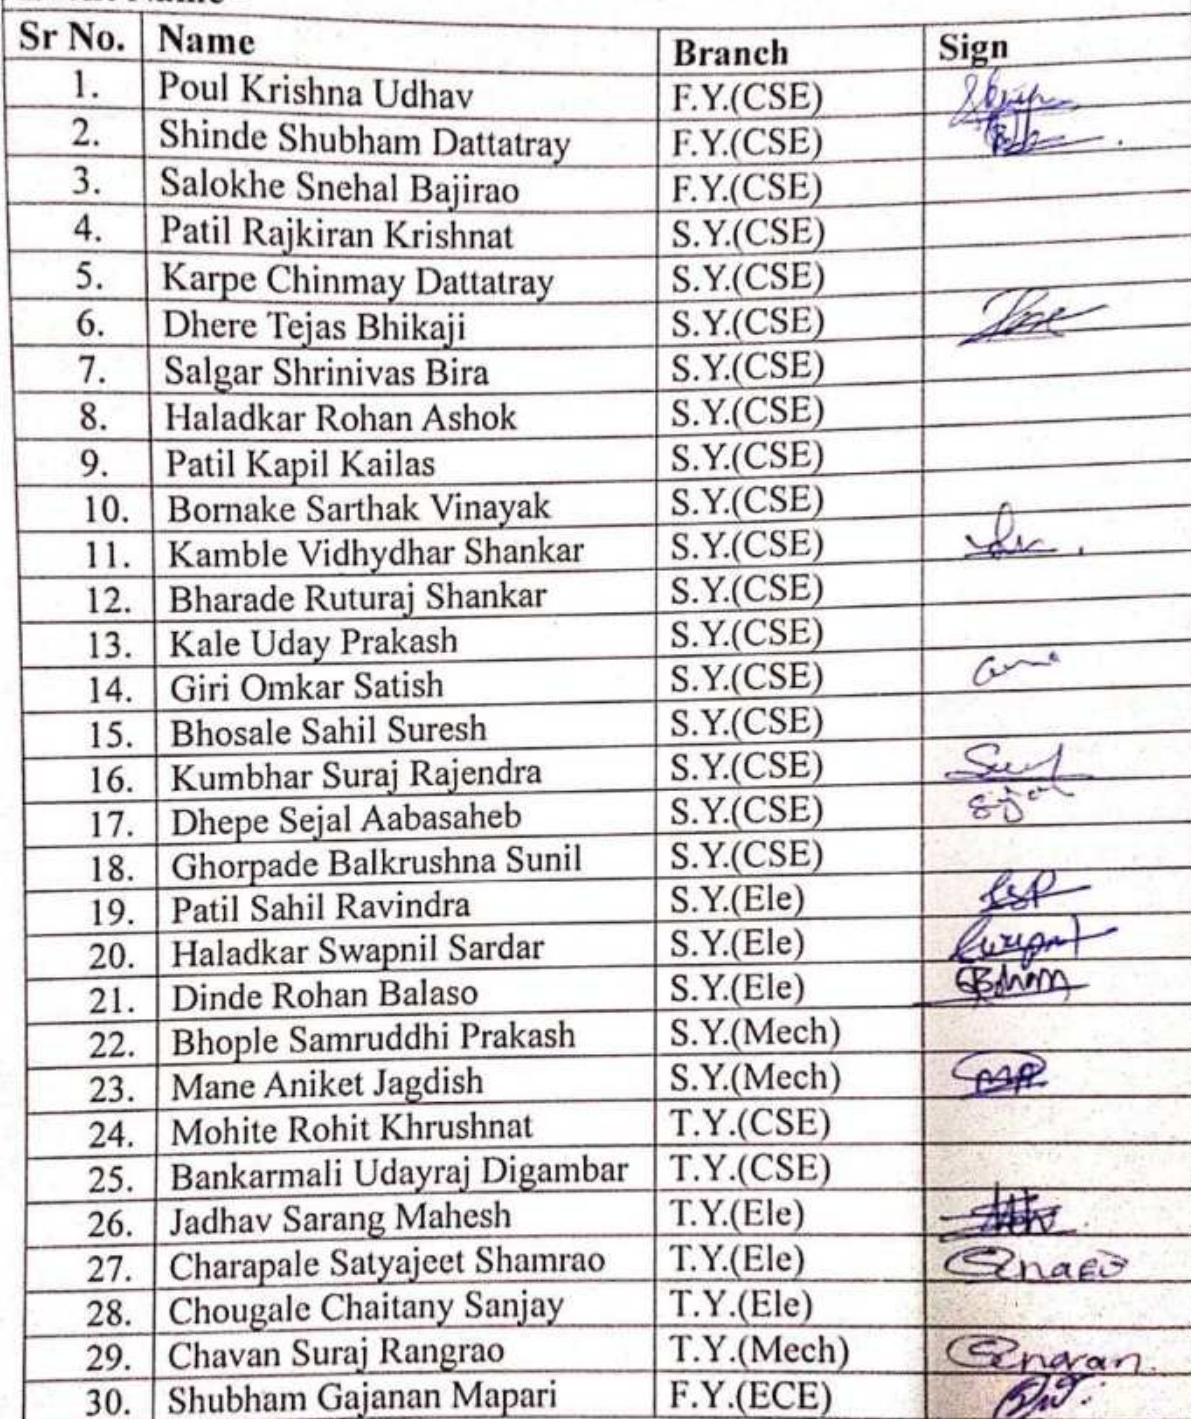 Sr No. Name Branch Sign
1. Poul Krishna Udhav F.Y.(CSE)
2. Shinde Shubham Dattatray F.Y.(CSE)
3. Salokhe Snehal Bajirao F.Y.(CSE)
4. Patil Rajkiran Krishnat S.Y.(CSE)
5. Karpe Chinmay Dattatray S.Y.(CSE)
6. Dhere Tejas Bhikaji S.Y.(CSE)
7. Salgar Shrinivas Bira S.Y.(CSE)
8. Haladkar Rohan Ashok S.Y.(CSE)
9. Patil Kapil Kailas S.Y.(CSE)
10. Bornake Sarthak Vinayak S.Y.(CSE)
11. Kamble Vidhydhar Shankar S.Y.(CSE)
12. Bharade Ruturaj Shankar S.Y.(CSE)
13. Kale Uday Prakash S.Y.(CSE)
14. Giri Omkar Satish S.Y.(CSE)
15. Bhosale Sahil Suresh S.Y.(CSE)
16. Kumbhar Suraj Rajendra S.Y.(CSE)
17. Dhepe Sejal Aabasaheb S.Y.(CSE)
18. Ghorpade Balkrushna Sunil S.Y.(CSE)
19. Patil Sahil Ravindra S.Y.(Ele)
20. Haladkar Swapnil Sardar S.Y.(Ele)
21. Dinde Rohan Balaso S.Y.(Ele)
22. Bhople Samruddhi Prakash S.Y.(Mech)
23. Mane Aniket Jagdish S.Y.(Mech)
24. Mohite Rohit Khrushnat T.Y.(CSE)
25. Bankarmali Udayraj Digambar T.Y.(CSE)
26. Jadhav Sarang Mahesh T.Y.(Ele)
27. Charapale Satyajeet Shamrao T.Y.(Ele)
28. Chougale Chaitany Sanjay T.Y.(Ele)
29. Chavan Suraj Rangrao T.Y.(Mech)
30. Shubham Gajanan Mapari F.Y.(ECE)